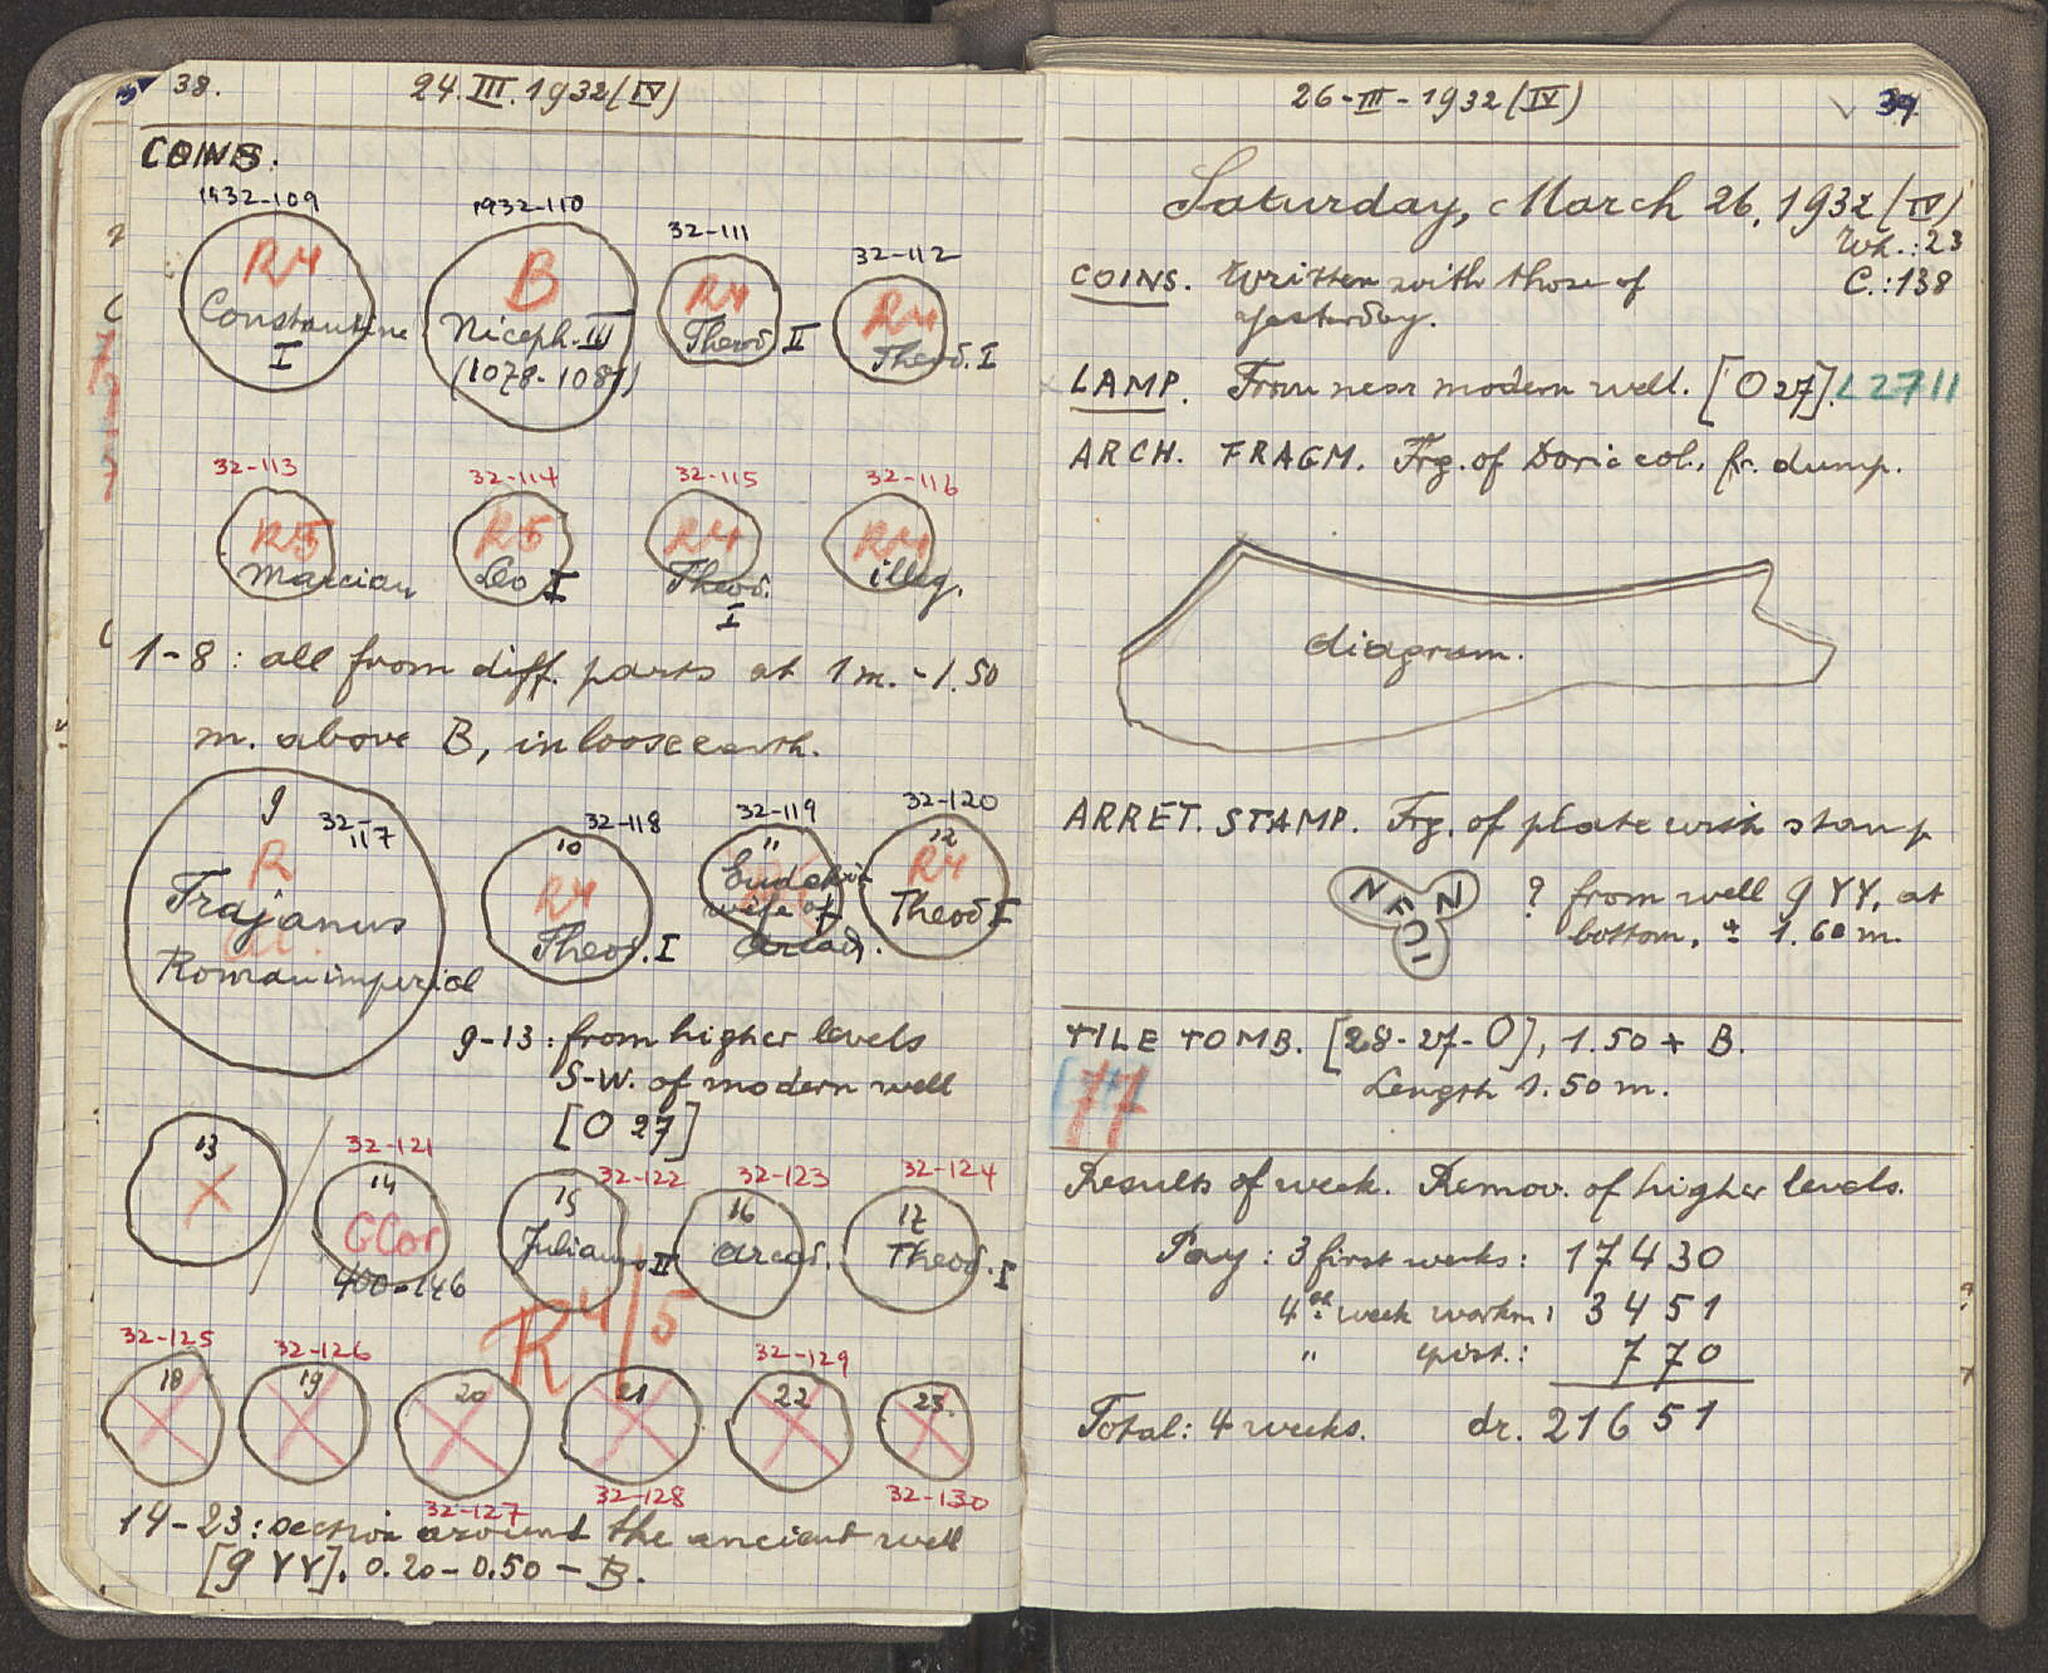 38. 24.III.1932(IV)
COINS.
1932-109 1932-110 32-111 32-112
R4 B R4 R4
Constantine I Niceph. III (1078-1081) Theod II Theod. I
32-113 32-114 32-115 32-116
R5 R5 R4 R4
Marcian Leo I Theod. I illeg.
1-8: all from diff. parts at 1 m. - 1.50
m. above B, in loose earth.
9 32-117 32-118 32-119 32-120
R 10 11 12
Trajanus R4 Eudokia R4
Roman imperial Theod. I wife of Arcad. Theod I
9-13: from higher levels
S-W. of modern well
[O 27]
13 32-121 32-122 32-123 32-124
14 15 16 17
GCor Julianus II Arcad. Theod. I
400-146
R4/5
32-125 32-126 32-129
18 19 20 21 22 23.
32-127 32-128 32-130
14-23: section around the ancient well
[9 YY], 0.20-0.50 - B.
26-III-1932(IV) 39.
Saturday, March 26, 1932 (IV)
Wk.: 23
COINS. Written with those of C.: 138
yesterday.
LAMP. From near modern well. [O 27]. L 2711
ARCH. FRAGM. Frg. of Doric col., fr. dump.
diagram.
ARRET. STAMP. Frg. of plate with stamp
? from well 9 YY, at
bottom, ± 1.60 m.
TILE TOMB. [28-27-O], 1.50 + B.
77 Length 1.50 m.
Results of week. Remov. of higher levels.
Pay: 3 first weeks: 17430
4th week workm: 3451
" epist.: 770
Total: 4 weeks. dr. 21651